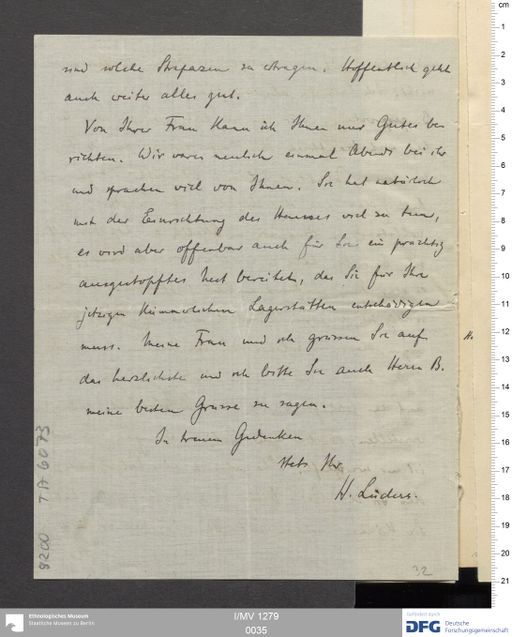 sind solche Strapazen zu ertragen. Hoffentlich geht
auch weiter alles gut.
Von Ihrer Frau kann ich Ihnen nur Gutes be
richten. Wir waren neulich einmal Abends bei ihr
und sprachen viel von Ihnen. Sie hat natürlich
mit der Einrichtung des Hauses viel zu tun,
es wird aber offenbar auch für Sie ein prächtig
ausgestopftes Nest bereitet, das Sie für Ihre
jetzigen kümmerlichen Lagerstätten entschädigen
muss. Meine Frau und ich grüssen Sie auf
das herzlichste und ich bitte Sie auch Herrn B.
meine besten Grüsse zu sagen.
In treuem Gedenken
stets Ihr
H. Lüders.
32
8200 TA 6073
cm
1
2
3
4
5
6
7
8
9
10
11
12
13
14
15
16
17
18
19
20
21
Ethnologisches Museum
Staatliche Museen zu Berlin
I/MV 1279
0035
Gefördert durch
DFG Deutsche
Forschungsgemeinschaft